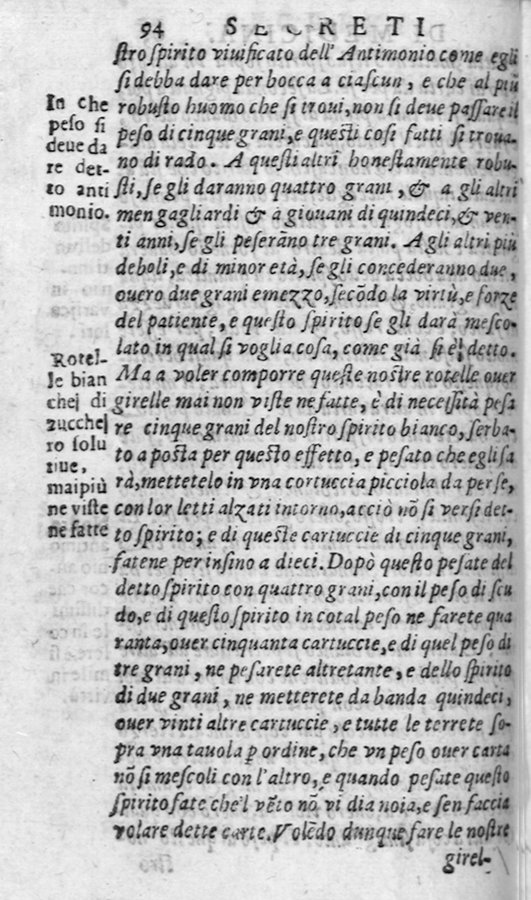 94 SECRETI
ſtro ſpirito viuificato dell'Antimonio come egli
ſi debba dare per bocca a ciaſcun, e che al più
robuſto huomo che ſi troui, non ſi deue paſſare il
peſo di cinque grani, e queſti coſi fatti ſi troua-
no di rado. A queſti altri honeſtamente robu-
ſti, ſe gli daranno quattro grani, & a gli altri
men gagliardi & a giouani di quindeci, & ven-
ti anni, ſe gli peſerāno tre grani. A gli altri più
deboli, e di minor età, ſe gli concederanno due,
ouero due grani e mezzo, ſecōdo la virtù, e forze
del patiente, e queſto ſpirito ſe gli darà meſco-
lato in qual ſi voglia coſa, come già ſi è detto.
Ma a voler comporre queſte noſtre rotelle ouer
girelle mai non viſte ne fatte, è di neceſſità peſa
re cinque grani del noſtro ſpirito bianco, ſerba-
to a poſta per queſto effetto, e peſato che egli ſa
rà, mettetelo in vna cartuccia picciola da per ſe,
con lor letti alzati intorno, acciò nō ſi verſi det-
to ſpirito; e di queſte cartuccie di cinque grani,
fatene per inſino a dieci. Dopò queſto peſate del
detto ſpirito con quattro grani, con il peſo di ſcu
do, e di queſto ſpirito in cotal peſo ne farete qua
ranta, ouer cinquanta cartuccie, e di quel peſo di
tre grani, ne peſarete altretante, e dello ſpirito
di due grani, ne metterete da banda quindeci,
ouer vinti altre cartuccie, e tutte le terrete ſo-
pra vna tauola ꝑ ordine, che vn peſo ouer carta
nō ſi meſcoli con l'altro, e quando peſate queſto
ſpirito fate che'l vēto nō vi dia noia, e ſen faccia
volare dette carte. Volēdo dunque fare le noſtre
girel-
In che
peſo ſi
deue da
re det-
to anti
monio.
Rotel-
le bian
che, di
zucche
ro ſolu
tiue,
mai più
ne viſte
ne fatte